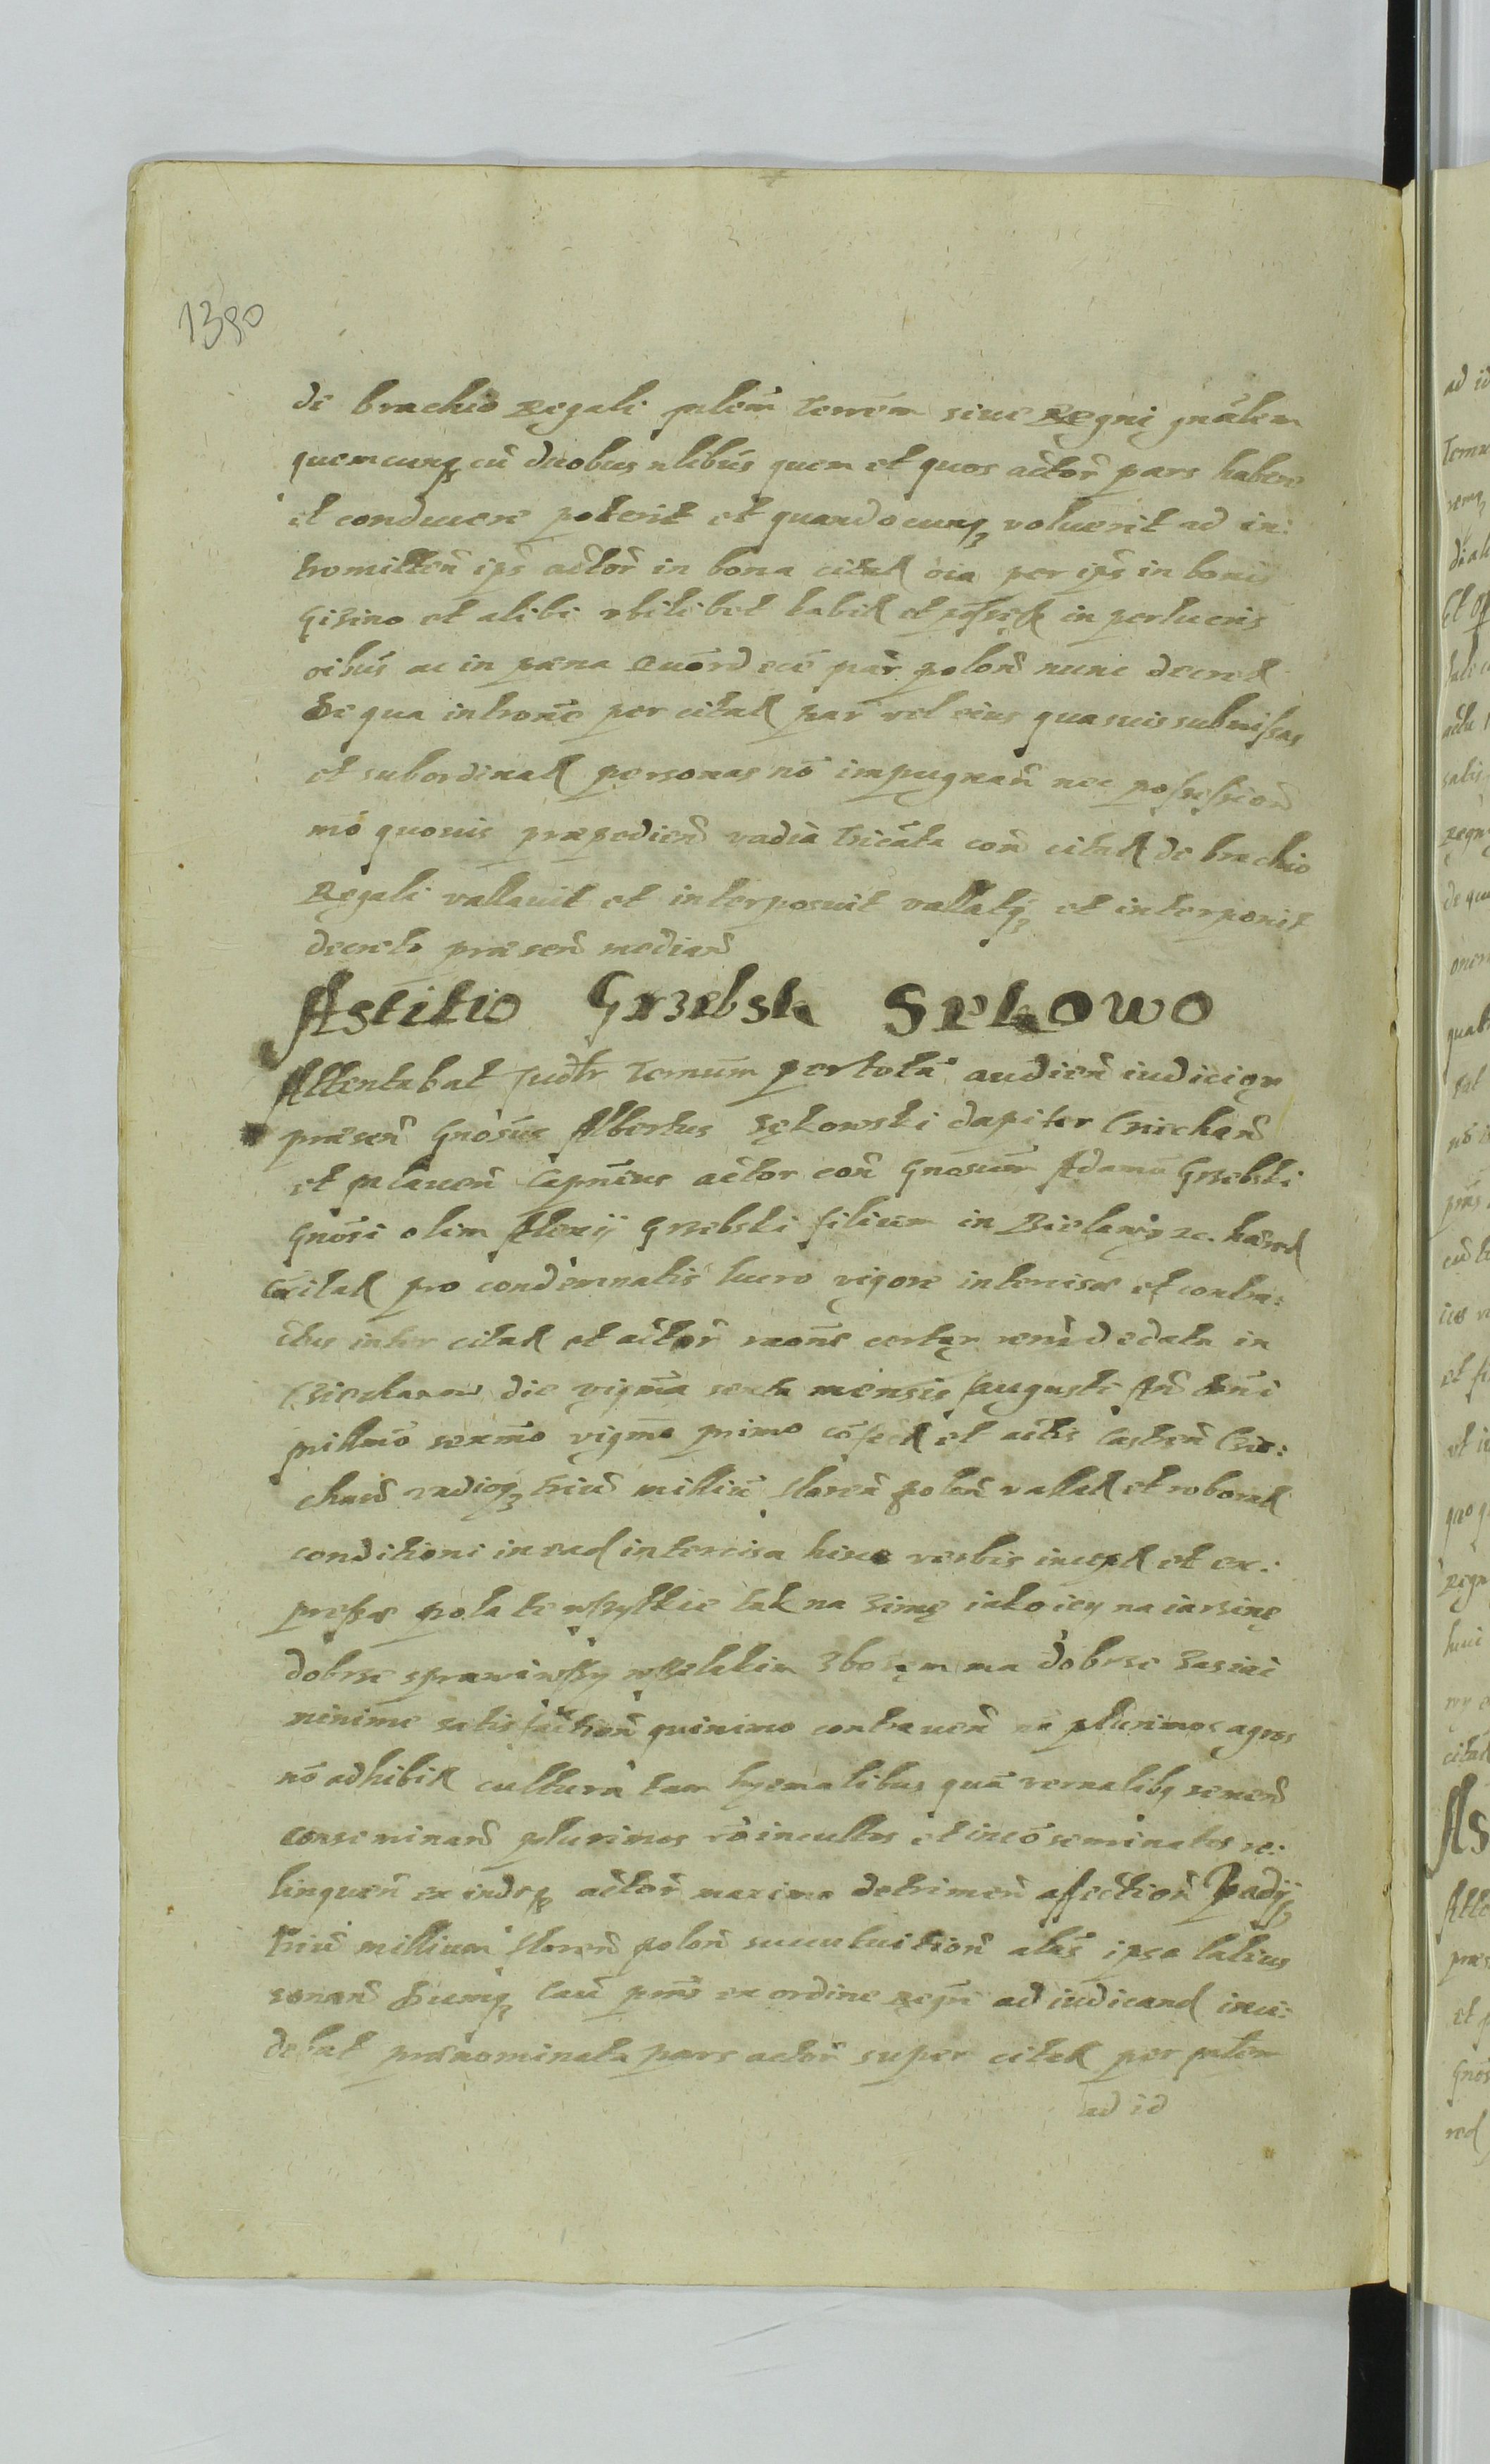 1390
de brachio Regali plem̃ Terrem̃ siue Regni gnãlem
quemcunq cũ duobus nlibus quem et quos actor̃ pars habere
et conducere poterit et quandocunq voluerit ad in:
tromitteñ ips actor̃ in bona citat oĩa per ips in bonis
Gizino et alibi vbilibet habit et possess in pertineñ
oĩbus ac in pæna Quordecẽ mar̃ poloñ nunc decret
De qua intrõne per citat par̃ vel eius quasuis submissas
et subordinat personas nõ impugnañ nec possessioñ
mõ quouis præpedieñ vadia tricata coñ citat de brachio
Regali vallauit et interposuit vallatq et interponit
decreto præseñ mediañ
Astitio Grzebsk Sekowo
Attentabat Judtr Ternum per totã audieñ iudicior
præseñ Gnosus Albertus Sękowski dapifer Cziechañ
et Capneus actor coñ Gnosum Adamũ Grzebski
Gnosi olim Alexij Grzebski filium in Bielawy zc. hæred
Citat pro condemnatis lucro vigore intercisæ et contra:
ctus inter citat et actor̃ raõne certar rerũ de data in
Cziechanow die vigma sexta mensis Augusti Añ Dñi
millmo sexmo vigmo primo cõfect et actis Castreñ Czie:
chañ vadioq triũ milliũ floreñ poloñ vallat et roborat
conditioni in ead intercisa hisce verbis incept et ex:
pressæ pola te wszystkie tak na zimę iako iey na iarzinę
dobrze sprawiwszy wszelakim zbożem ma dobrze zasiac
minime satisfactioñ quinimo contraueñ plurimos agros
nõ adhibit culturã tam hyemalibus quã vernalibq semeñ
conseminañ plurimos vo incultos et incõseminatos re:
linqueñ ex indeq actor̃ maximo detrimeñ affectioñ Vadij
triũ millium floreñ poloñ succubuitioñ alãs ipsa latius
sonañ cumq Caũ pñs ex ordine Regri ad iudicand inci:
debat prænominata pars actor̃ super citat per mltem
ad id